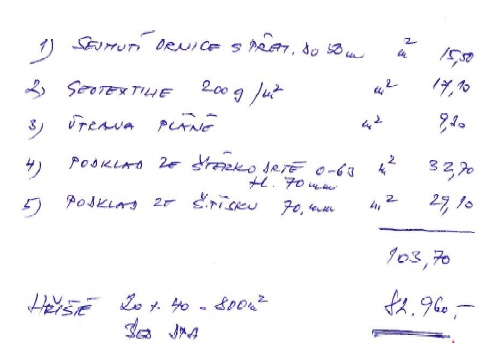 1) SEJMUTÍ ORNICE S PŘEM. DO 50m m² 15,50
2) GEOTEXTILIE 200g/m² m² 17,10
3) ÚPRAVA PLÁNĚ m² 9,20
4) PODKLAD ZE ŠTĚRKODRTĚ 0-63 m² 32,70
tl. 70mm
5) PODKLAD ZE Š.PÍSKU 70mm m² 29,10
103,70
HŘIŠTĚ 20 x 40 = 800m² 82.960,-
BEZ DPH